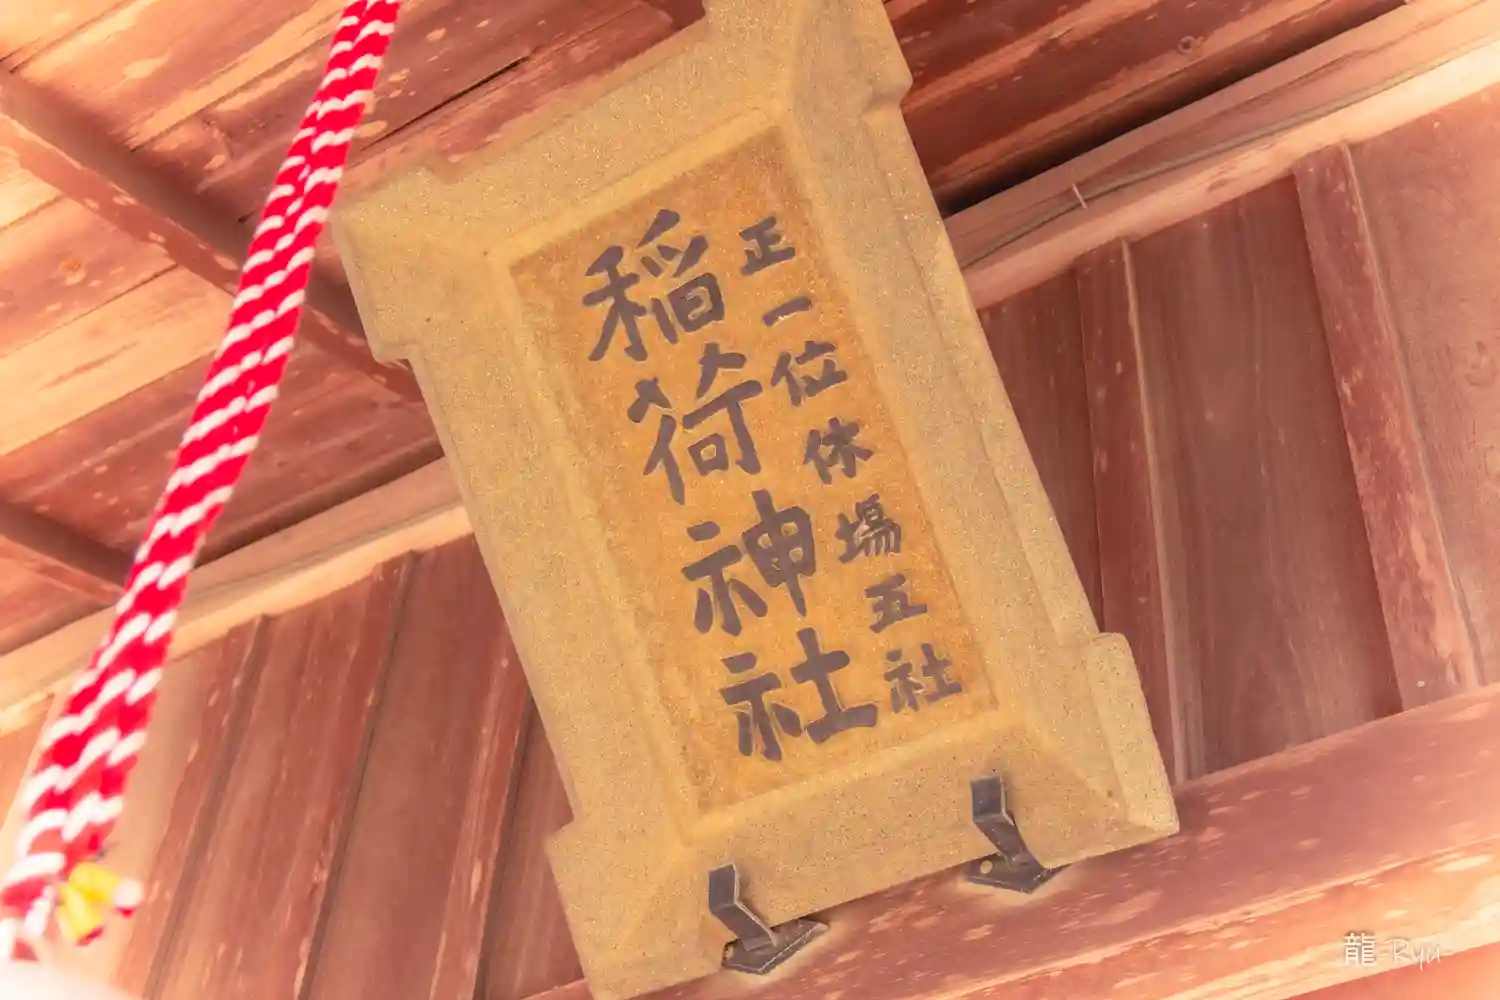 正一位休場五社
稲荷神社
龍 Ryu